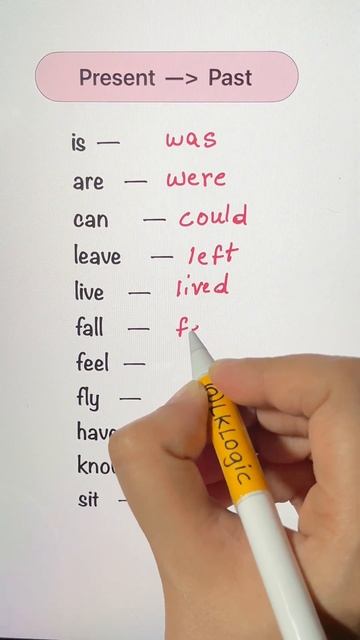 Present —> Past
is — was
are — were
can — could
leave — left
live — lived
fall — f
feel —
fly —
have
know
sit -